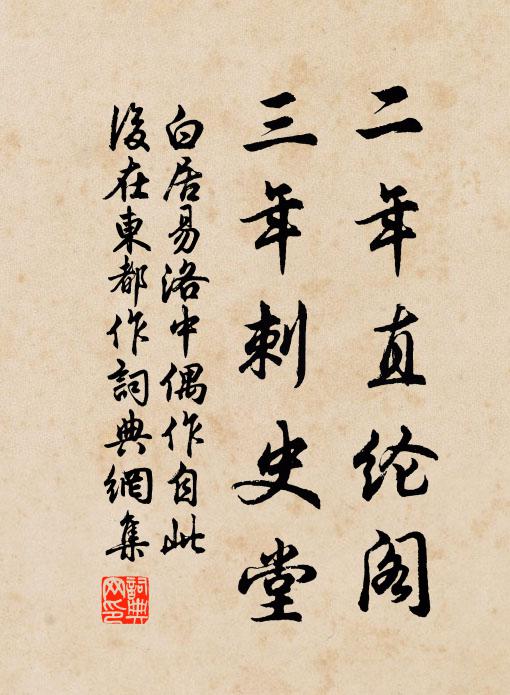 二年直纶阁
三年刺史堂
白居易洛中偶作自此
後在東都作詞典網集
詞典網印